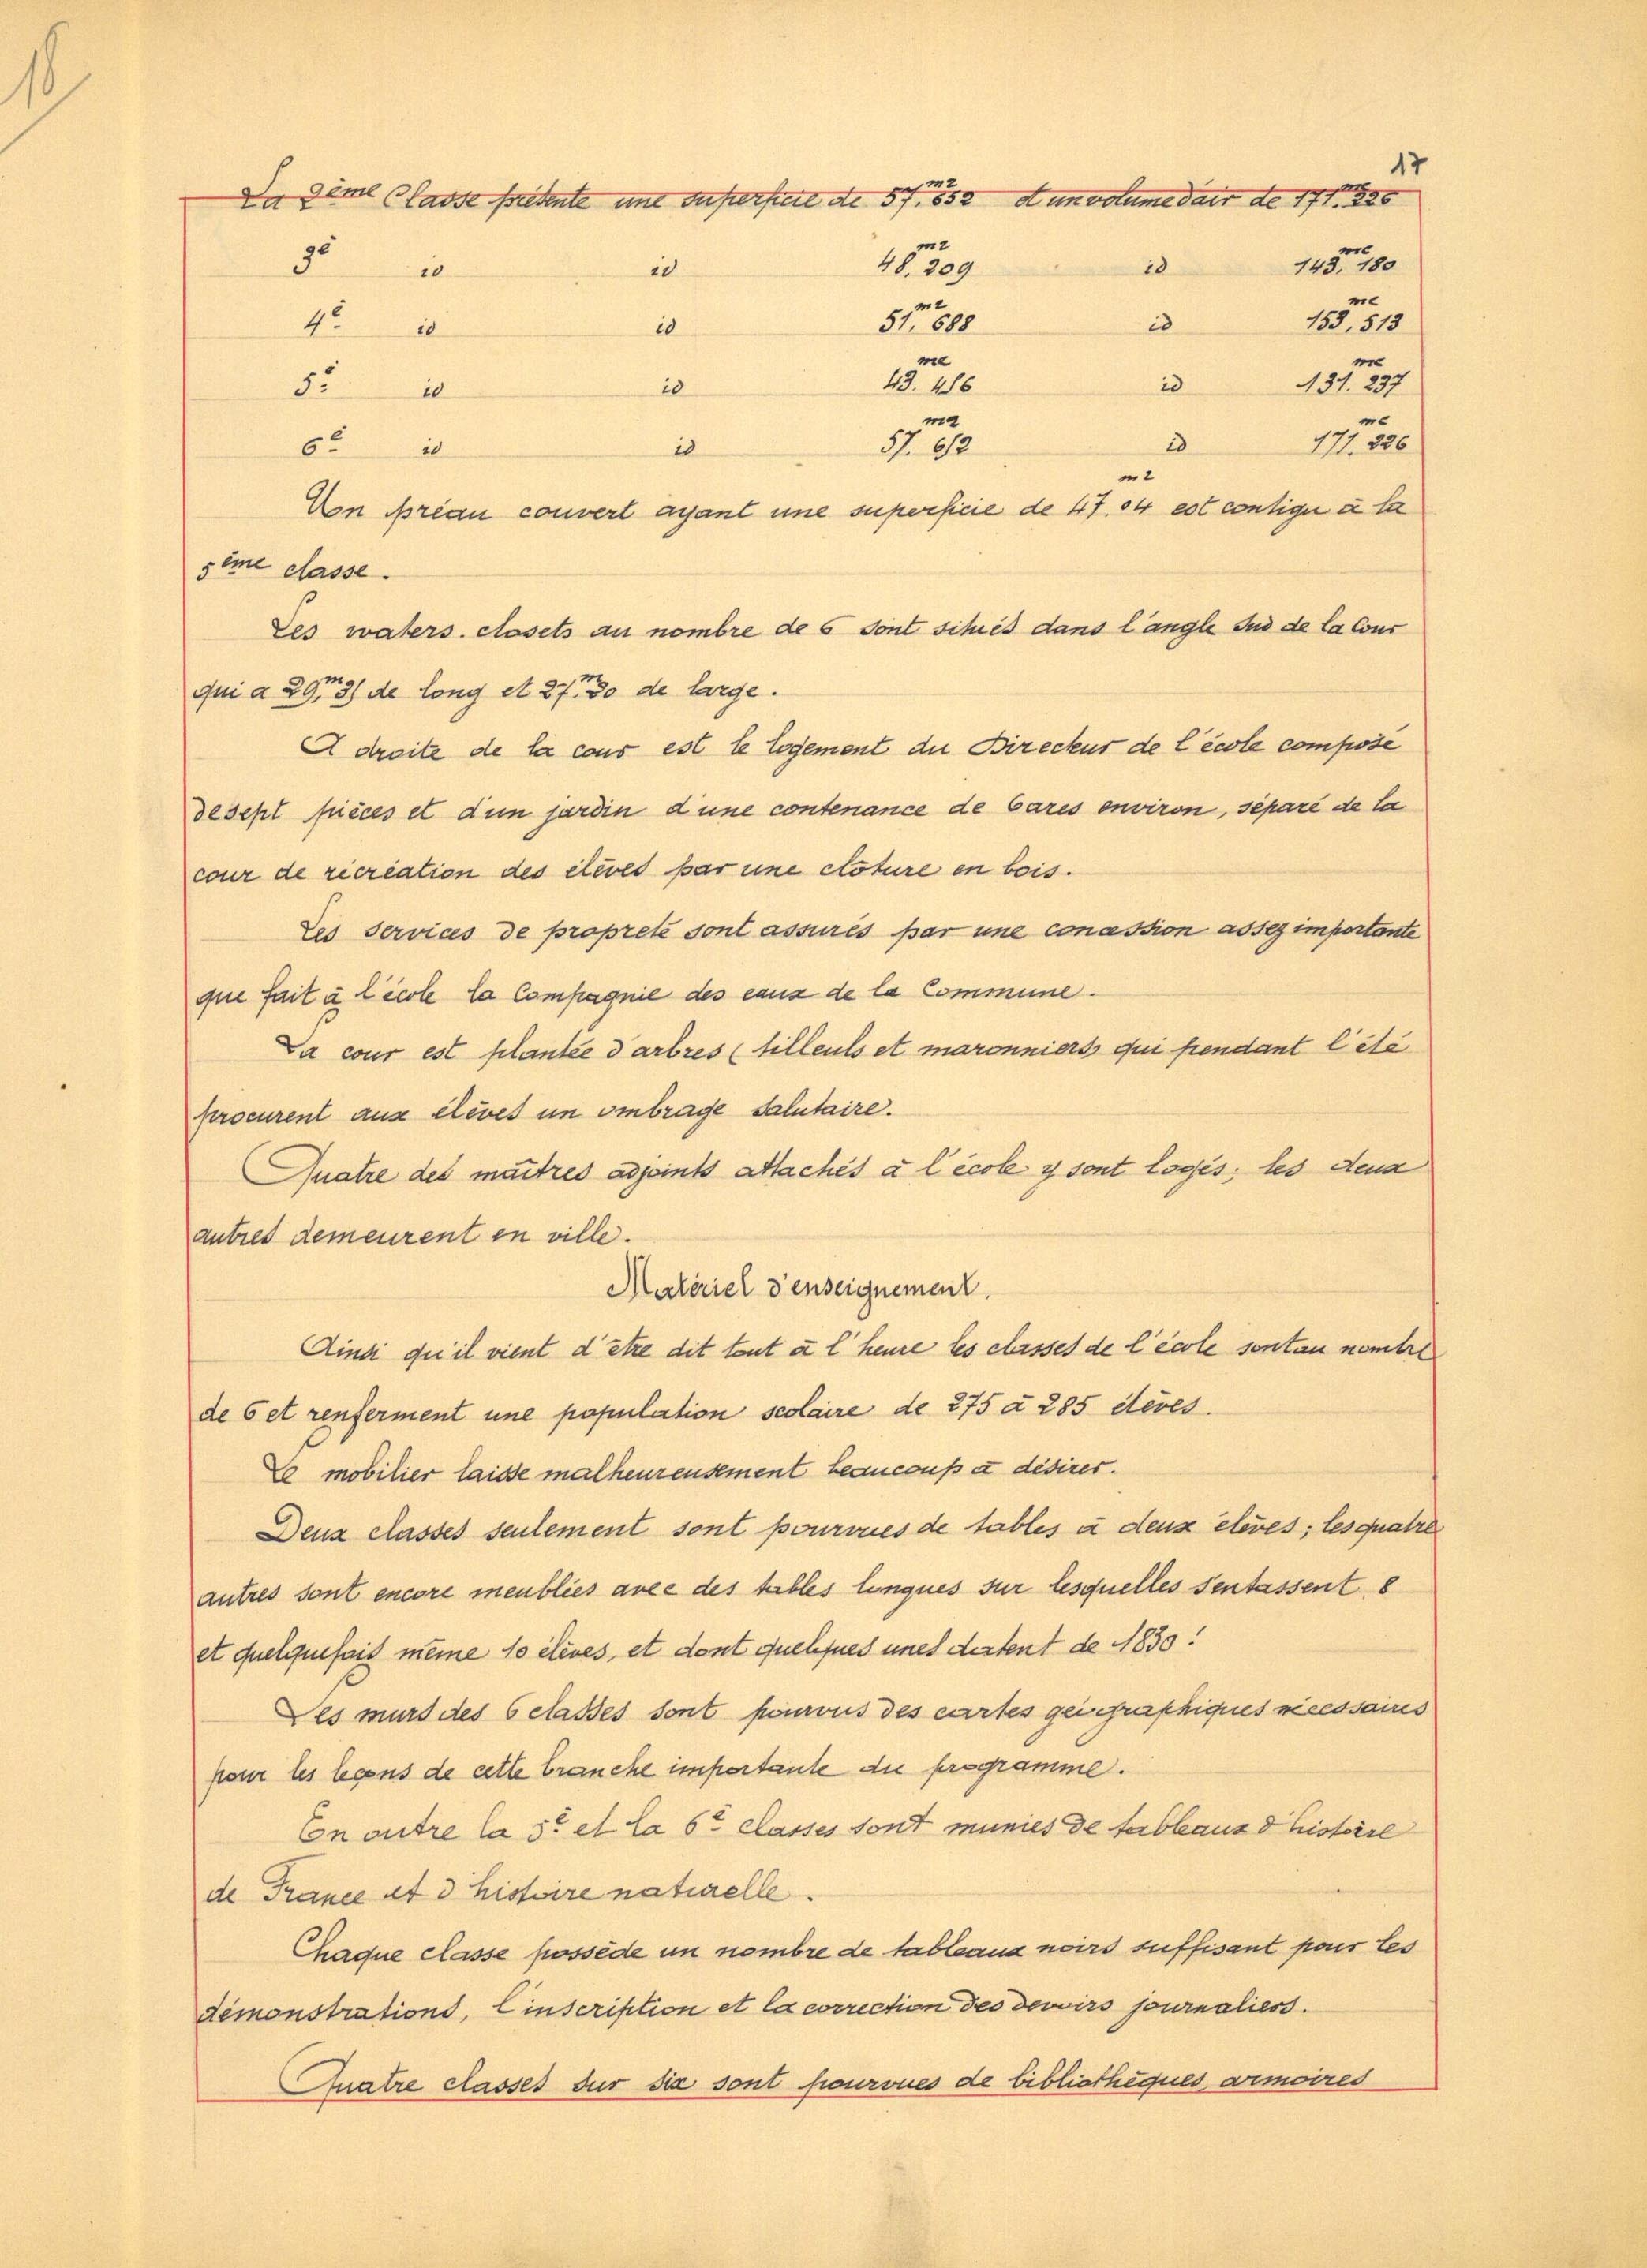 18
17
La 2ème Classe présente une superficie de 57,m2 652 et un volume d'air de 171,mc 226
3e id id 48,m2 209 id 143,mc 180
4e id id 51,m2 688 id 153,mc 513
5e id id 43.m2 416 id 131.mc 237
6e id id 57.m2 612 id 171.mc 226
Un préau couvert ayant une superficie de 47,m2 04 est contigu à la
5ème classe.
Les waters-closets au nombre de 6 sont situés dans l'angle Sud de la Cour
qui a 29,m 31 de long et 27,m 30 de large.
A droite de la cour est le logement du Directeur de l'école composé
de sept pièces et d'un jardin d'une contenance de 6 ares environ, séparé de la
cour de récréation des élèves par une clôture en bois.
Les services de propreté sont assurés par une concession assez importante
que fait à l'école la Compagnie des eaux de la Commune.
La cour est plantée d'arbres (tilleuls et maronniers) qui pendant l'été
procurent aux élèves un ombrage salutaire.
Quatre des maîtres adjoints attachés à l'école y sont logés; les deux
autres demeurent en ville.
Matériel d'enseignement.
Ainsi qu'il vient d'être dit tout à l'heure les classes de l'école sont au nombre
de 6 et renferment une population scolaire de 275 à 285 élèves.
Le mobilier laisse malheureusement beaucoup à désirer.
Deux classes seulement sont pourvues de tables à deux élèves; les quatre
autres sont encore meublées avec des tables longues sur lesquelles s'entassent 8
et quelquefois même 10 élèves, et dont quelques unes datent de 1830!
Les murs des 6 classes sont pourvus des cartes géographiques nécessaires
pour les leçons de cette branche importante du programme.
En outre la 5e et la 6e classes sont munies de tableaux d'histoire
de France et d'histoire naturelle.
Chaque classe possède un nombre de tableaux noirs suffisant pour les
démonstrations, l'inscription et la correction des devoirs journaliers.
Quatre classes sur six sont pourvues de bibliothèques, armoires